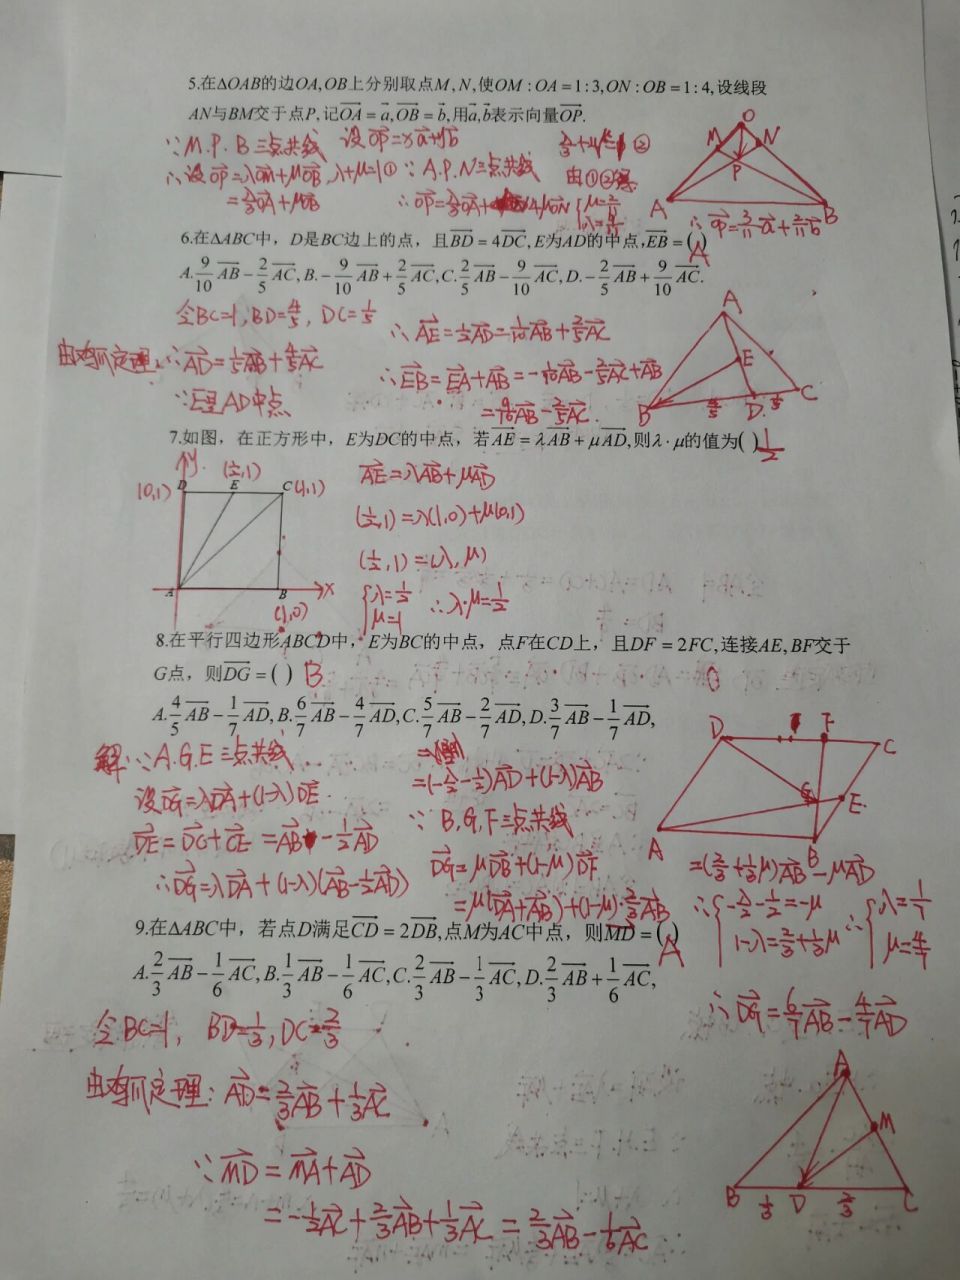 5.在ΔOAB的边OA,OB上分别取点M,N,使OM:OA=1:3,ON:OB=1:4,设线段
AN与BM交于点P,记OA=a,OB=b,用a,b表示向量OP.
∵M.P.B三点共线 设OP=xa+yb
∴设OP=λOM+μOB,λ+μ=1① ∵A.P.N三点共线 由①②得
=λ/3OA+μOB
O
M N
P
A B
∴OP=3/11a+2/11b
6.在ΔABC中，D是BC边上的点，且BD=4DC,E为AD的中点,EB=( ) A
A.9/10AB-2/5AC,B.-9/10AB+2/5AC,C.2/5AB-9/10AC,D.-2/5AB+9/10AC.
令BC=1,BD=4/5,DC=1/5 ∴AE=1/2AD=1/10AB+2/5AC
由鸡爪定理:∵AD=1/5AB+4/5AC ∴EB=EA+AB=-1/10AB-2/5AC+AB
∵E是AD中点 =9/10AB-2/5AC.
A
E
B 4/5 D 1/5 C
7.如图，在正方形中，E为DC的中点，若AE=λAB+μAD,则λ·μ的值为( ) 1/2
y (1/2,1)
(0,1) D E C (1,1)
A B x
(1,0)
AE=λAB+μAD
(1/2,1)=λ(1,0)+μ(0,1)
(1/2,1)=(λ,μ)
{λ=1/2 μ=1 ∴λ·μ=1/2
8.在平行四边形ABCD中，E为BC的中点，点F在CD上，且DF=2FC,连接AE,BF交于
G点，则DG=( ) B
A.4/5AB-1/7AD,B.6/7AB-4/7AD,C.5/7AB-2/7AD,D.3/7AB-1/7AD,
解:∵A.G.E三点共线
设DG=λDA+(1-λ)DE
DE=DC+CE=AB-1/2AD
∴DG=λDA+(1-λ)(AB-1/2AD)
=(-λ/2-1/2)AD+(1-λ)AB
∵B,G,F三点共线
DG=μDB+(1-μ)DF
=μ(DA+AB)+(1-μ)·2/3AB
D F C
G E
A B
=(2/3+1/3μ)AB-μAD
∴{-λ/2-1/2=-μ 1-λ=2/3+1/3μ ∴{λ=1/7 μ=4/7
∴DG=6/7AB-4/7AD
9.在ΔABC中，若点D满足CD=2DB,点M为AC中点，则MD=( ) A
A.2/3AB-1/6AC,B.1/3AB-1/6AC,C.2/3AB-1/3AC,D.2/3AB+1/6AC,
令BC=1, BD=1/3,DC=2/3
由鸡爪定理:AD=2/3AB+1/3AC
∵MD=MA+AD
=-1/2AC+2/3AB+1/3AC=2/3AB-1/6AC
A
M
B 1/3 D 2/3 C